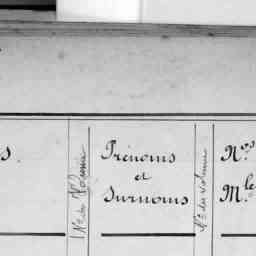 s.
N° du Volume
Prénoms
et
Surnoms
N° du volume
Nos
Mle